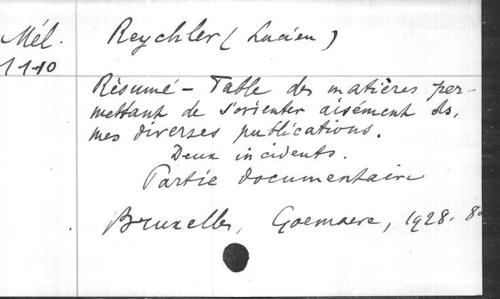 Mél. Reychler (Lucien)
1110
Résumé - Table des matières per-
mettant de s'orienter aisément ds.
mes diverses publications.
Deux incidents.
Partie documentaire
Bruxelles, Goemaere, 1928. 8º